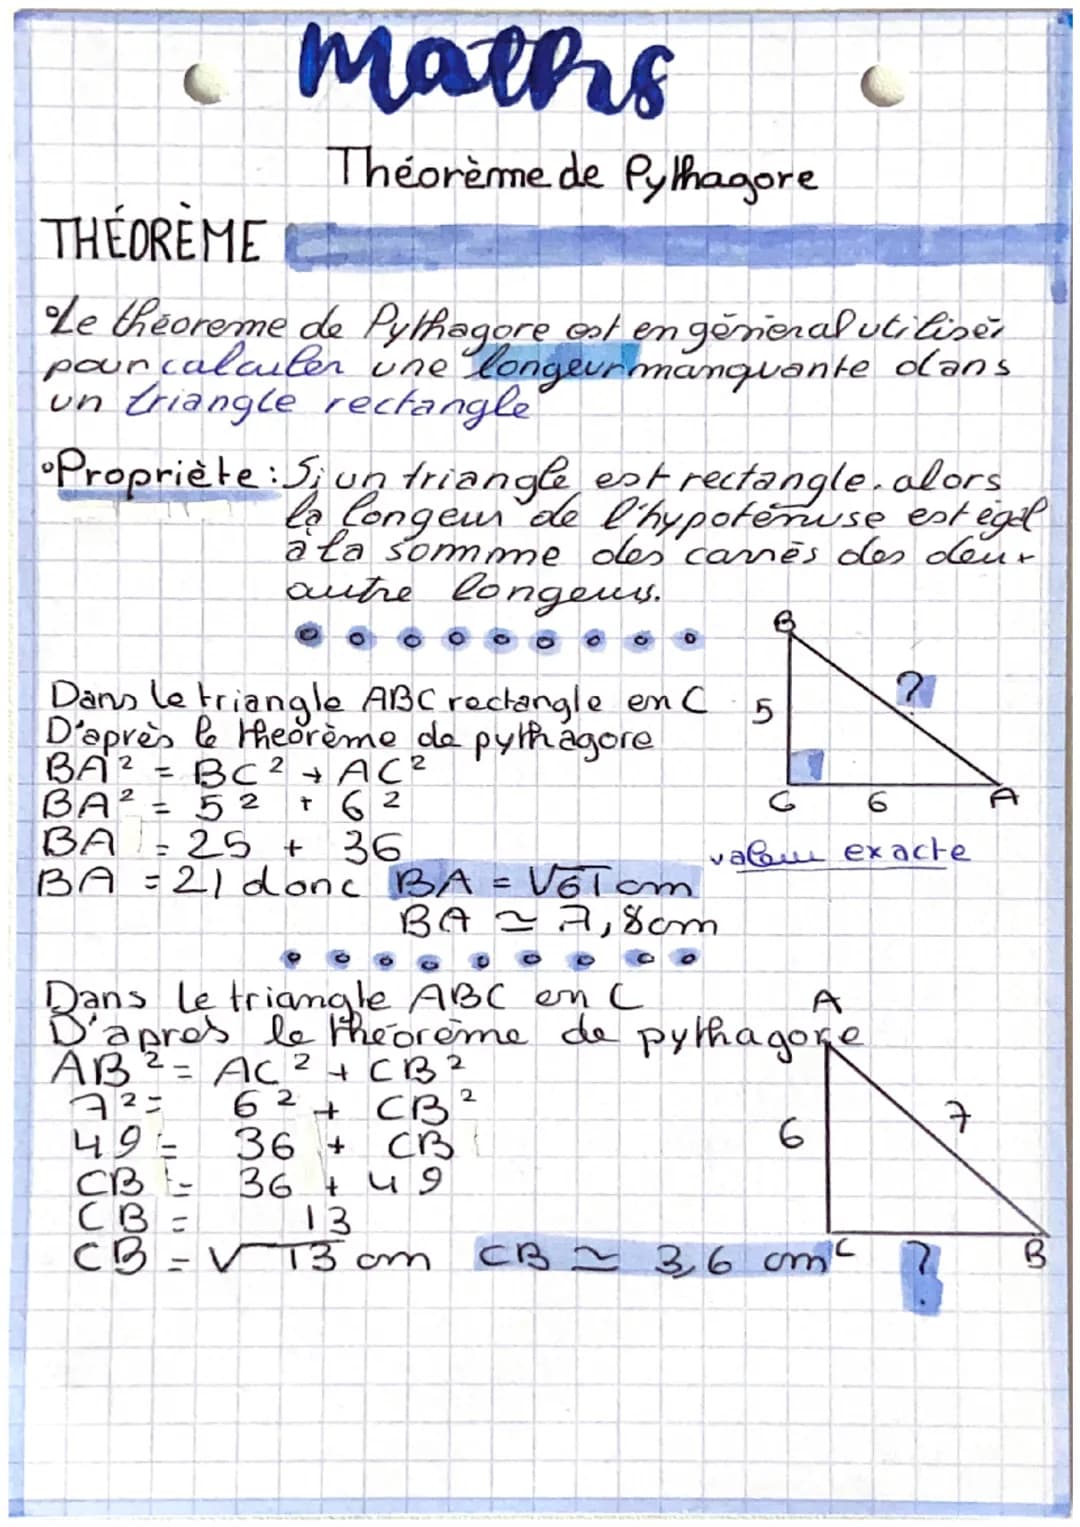 Maths
Théorème de Pythagore
THÉORÈME
Le théoreme de Pythagore est en géneral utiliser
pour calculer une longeur manquante dans
un triangle rectangle
Propriète : Si un triangle est rectangle. alors
la longeur de l'hypoténuse est égal
à la sommme des carrés des deux
autre longeurs.
B
?
5
C 6 A
Dans le triangle ABC rectangle en C
D'après le theorème de pythagore
BA² = BC² + AC²
BA² = 5² + 6²
BA = 25 + 36
valeur exacte
BA = 21 donc BA = √61 cm
BA ≃ 7,8cm
Dans le triangle ABC en C
D'apres le théorème de pythagore
AB² = AC² + CB²
7² = 6² + CB²
49 = 36 + CB
CB = 36 + 49
CB = 13
CB = √13 cm CB ≃ 3,6 cm
A
6 7
C ? B